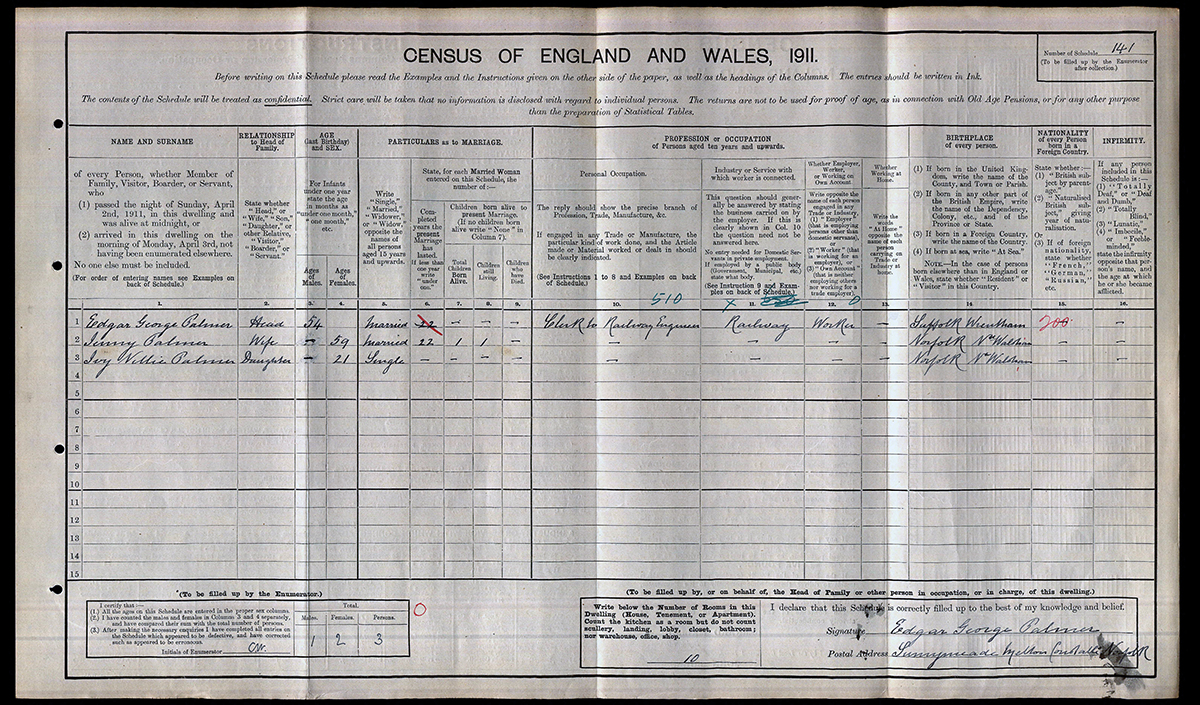 CENSUS OF ENGLAND AND WALES, 1911.
Number of Schedule 141
(To be filled up by the Enumerator
after collection.)
Before writing on this Schedule please read the Examples and the Instructions given on the other side of the paper, as well as the headings of the Columns. The entries should be written in Ink.
The contents of the Schedule will be treated as confidential. Strict care will be taken that no information is disclosed with regard to individual persons. The returns are not to be used for proof of age, as in connection with Old Age Pensions, or for any other purpose
than the preparation of Statistical Tables.
NAME AND SURNAME
of every Person, whether Member of
Family, Visitor, Boarder, or Servant,
who
(1) passed the night of Sunday, April
2nd, 1911, in this dwelling and
was alive at midnight, or
(2) arrived in this dwelling on the
morning of Monday, April 3rd, not
having been enumerated elsewhere.
No one else must be included.
(For order of entering names see Examples on
back of Schedule.)
RELATIONSHIP
to Head of
Family.
State whether
"Head," or
"Wife," "Son,"
"Daughter," or
other Relative,
"Visitor,"
"Boarder," or
"Servant."
AGE
(last Birthday)
and SEX.
For Infants
under one year
state the age
in months as
"under one month,"
"one month,"
etc.
Ages
of
Males.
Ages
of
Females.
PARTICULARS as to MARRIAGE.
Write
"Single,"
"Married,"
"Widower,"
or "Widow,"
opposite the
names of
all persons
aged 15 years
and upwards.
State, for each Married Woman
entered on this Schedule, the
number of:—
Completed
years the
present
Marriage
has
lasted.
If less than
one year
write
"under
one."
Children born alive to
present Marriage.
(If no children born
alive write "None" in
Column 7).
Total
Children
Born
Alive.
Children
still
Living.
Children
who
have
Died.
PROFESSION or OCCUPATION
of Persons aged ten years and upwards.
Personal Occupation.
The reply should show the precise branch of
Profession, Trade, Manufacture, &c.
If engaged in any Trade or Manufacture, the
particular kind of work done, and the Article
made or Material worked or dealt in should
be clearly indicated.
(See Instructions 1 to 8 and Examples on back
of Schedule.)
Industry or Service with
which worker is connected.
This question should generally
be answered by stating
the business carried on by
the employer. If this is
clearly shown in Col. 10
the question need not be
answered here.
No entry needed for Domestic Servants
in private employment.
If employed by a public body
(Government, Municipal, etc.)
state what body.
(See Instruction 9 and Examples
on back of Schedule.)
Whether Employer,
Worker,
or Working on
Own Account.
Write opposite the
name of each person
engaged in any
Trade or Industry,
(1) "Employer"
(that is employing
persons other than
domestic servants),
or
(2) "Worker" (that
is working for an
employer), or
(3) "Own Account"
(that is neither
employing others
nor working for a
trade employer).
Whether
Working at
Home.
Write the
words
"At Home"
opposite the
name of each
person
carrying on
Trade or
Industry at
home.
BIRTHPLACE
of every person.
(1) If born in the United Kingdom,
write the name of the
County, and Town or Parish.
(2) If born in any other part of
the British Empire, write
the name of the Dependency,
Colony, etc., and of the
Province or State.
(3) If born in a Foreign Country,
write the name of the Country.
(4) If born at sea, write "At Sea."
NOTE.—In the case of persons
born elsewhere than in England or
Wales, state whether "Resident" or
"Visitor" in this Country.
NATIONALITY
of every Person
born in a
Foreign Country.
State whether:—
(1) "British subject
by parentage,"
(2) "Naturalised
British subject,"
giving
year of naturalisation.
Or
(3) If of foreign
nationality,
state whether
"French,"
"German,"
"Russian,"
etc.
INFIRMITY.
If any person
included in this
Schedule is:—
(1) "Totally
Deaf," or "Deaf
and Dumb,"
(2) "Totally
Blind,"
(3) "Lunatic,"
(4) "Imbecile,"
or "Feeble-
minded,"
state the infirmity
opposite that person's
name, and
the age at which
he or she became
afflicted.
510 X 0
1. 2. 3. 4. 5. 6. 7. 8. 9. 10. 11. 12. 13. 14 15. 16.
1 Edgar George Palmer Head 54 Married 22 — — — Clerk to Railway Engineer Railway Worker — Suffolk Wrentham 200
2 Jenny Palmer Wife — 59 Married 22 1 1 — — — — — Norfolk Nth Walsham
3 Ivy Nellie Palmer Daughter — 21 Single — — — — — — — — Norfolk Nth Walsham
4
5
6
7
8
9
10
11
12
13
14
15
(To be filled up by the Enumerator.)
I certify that:—
(1.) All the ages on this Schedule are entered in the proper sex columns.
(2.) I have counted the males and females in Columns 3 and 4 separately,
and have compared their sum with the total number of persons.
(3.) After making the necessary enquiries I have completed all entries on
the Schedule which appeared to be defective, and have corrected
such as appeared to be erroneous.
Initials of Enumerator
Total.
Males. Females. Persons.
1 2 3
0
(To be filled up by, or on behalf of, the Head of Family or other person in occupation, or in charge, of this dwelling.)
Write below the Number of Rooms in this
Dwelling (House, Tenement, or Apartment).
Count the kitchen as a room but do not count
scullery, landing, lobby, closet, bathroom;
nor warehouse, office, shop.
10
I declare that this Schedule is correctly filled up to the best of my knowledge and belief.
Signature Edgar George Palmer
Postal Address Sunnymeade Melton Constable Norfolk